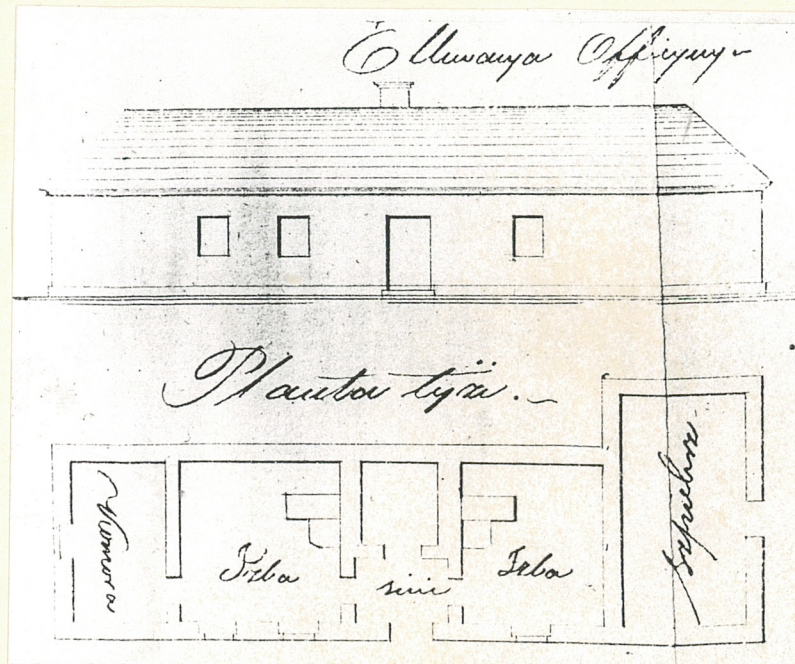 Elewacya Officyny
Planta tÿże.
Komora
Izba
sień
Izba
Szpichrz